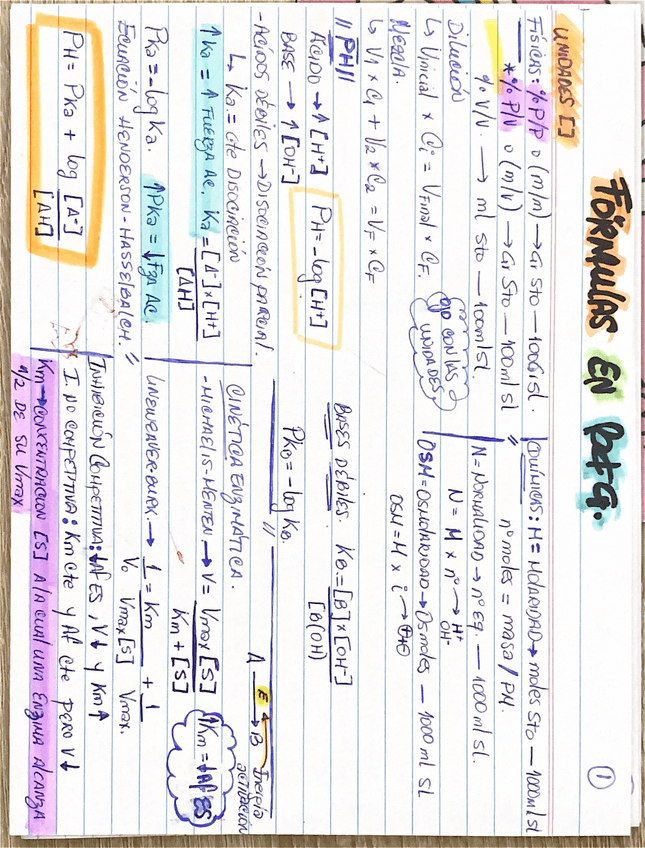 FÓRMULAS EN BQFQ.
1
UNIDADES []
FÍSICAS: % P/P o (m/m) → Gr sto — 100Gr sl.
* % P/V o (m/v) → Gr Sto — 100ml sl
% V/V. → ml sto — 100ml sl.
Dilución
↳ Vinicial x Ci = VFinal x CF.
OJO CON LAS UNIDADES
Mezcla.
↳ V1 x C1 + V2 x C2 = VF x CF
QUÍMICAS: M = MOLARIDAD → moles sto — 1000ml sl
nº moles = masa / PM.
N = NORMALIDAD → nº Eq. — 1000 ml sl.
N = M x nº → H+
OH-
OSM = OSMOLARIDAD → Osmoles — 1000 ml sl
OSM = M x i
// PH //
ÁCIDO → ↑ [H+]
BASE → ↑ [OH-]
PH = -log [H+]
- ÁCIDOS DÉBILES → DISOCIACIÓN PARCIAL.
↳ Ka = cte DISOCIACIÓN
↑ Ka = ↑ FUERZA AC. Ka = [A-] x [H+]
[AH]
PKa = -log Ka. ↑ PKa = ↓ Fza AC.
ECUACIÓN HENDERSON-HASSELBALCH. //
PH = PKa + log [A-]
[AH]
BASES DÉBILES. Kb = [B] x [OH-]
[B(OH)
PKb = -log Kb.
//
CINÉTICA ENZIMÁTICA.
A E → B
Energía activación
- MICHAELIS-MENTEN → V = Vmax [S]
Km + [S]
↑Km = ↓AF ES
LINEWEAVER BURK → 1 = Km + 1
Vo Vmax [S] Vmax.
INHIBICIÓN COMPETITIVA: ↓AF ES, V↓ y Km ↑
I. NO COMPETITIVA: Km cte y AF cte pero V ↓
Km → CONCENTRACIÓN [S] A LA CUAL UNA ENZIMA ALCANZA
1/2 DE SU Vmax